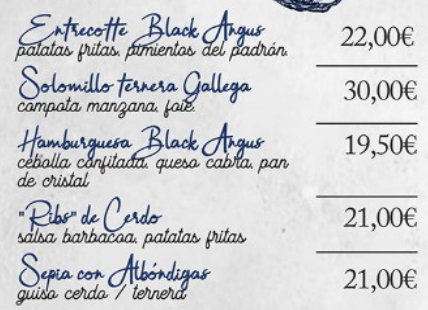 Entrecotte Black Angus 22,00€
patatas fritas, pimientos del padrón.
Solomillo ternera Gallega 30,00€
compota manzana, foie.
Hamburguesa Black Angus 19,50€
cebolla confitada, queso cabra, pan
de cristal
"Ribs" de Cerdo 21,00€
salsa barbacoa, patatas fritas
Sepia con Albóndigas 21,00€
guiso cerdo / ternera